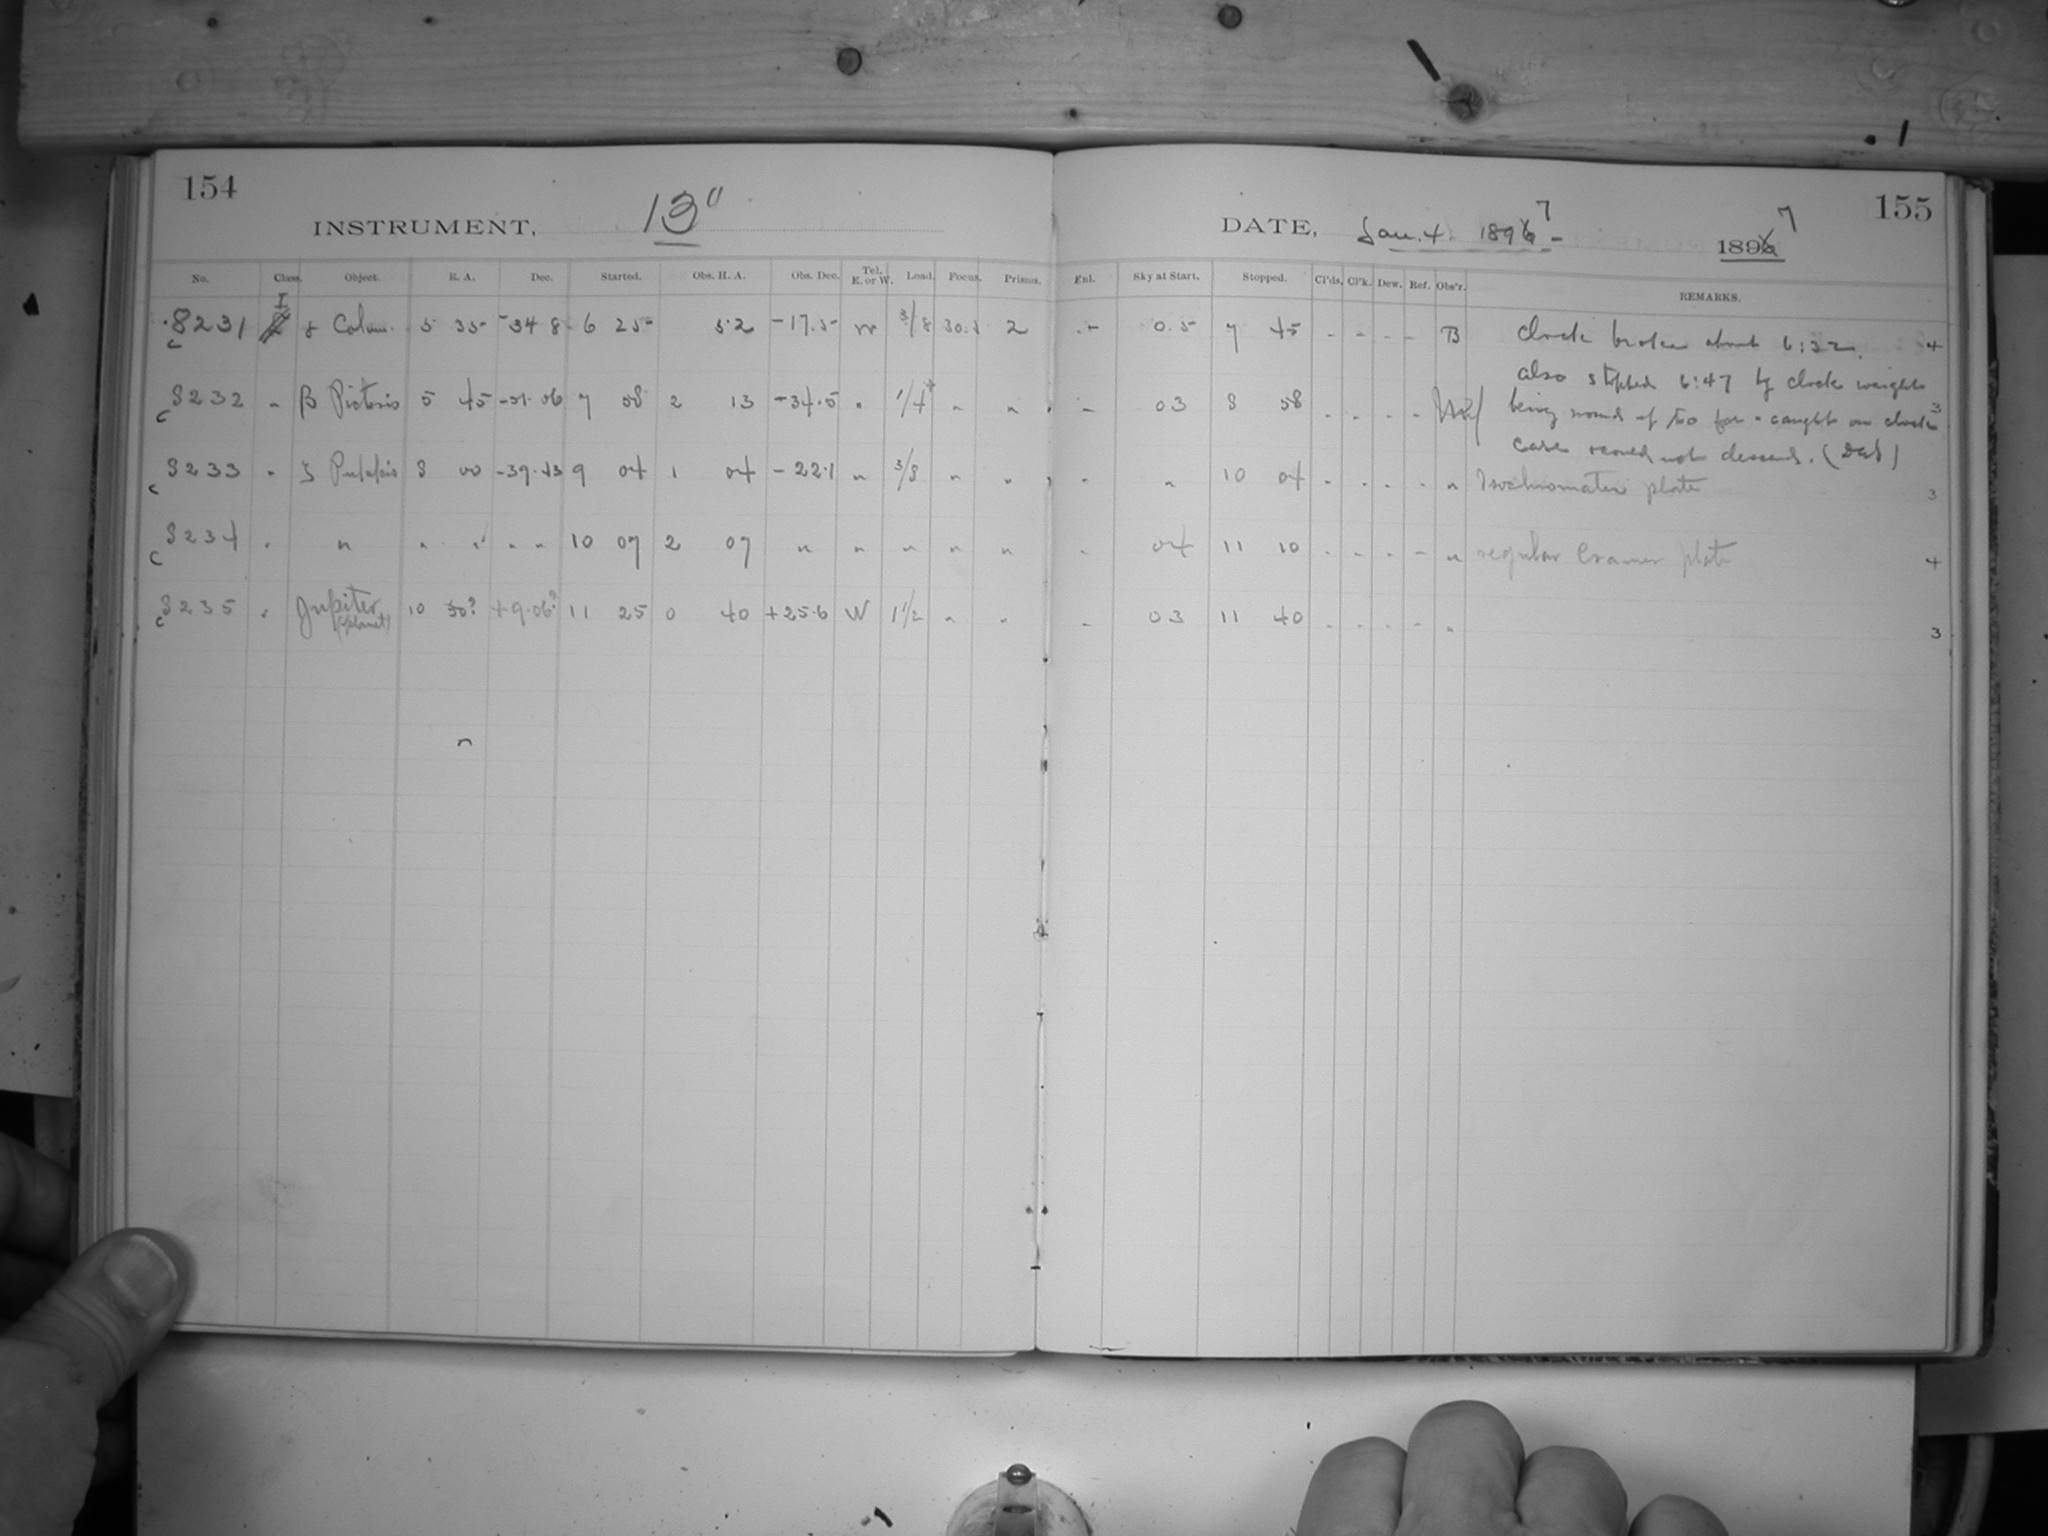 154
INSTRUMENT, 13"
No. Class. Object. R. A. Dec. Started. Obs. H. A. Obs. Dec. Tel. E. or W. Load. Focus. Prisms.
8231 I Colum. 5 35 -34 8 6 25 52 -17.5 W 3/8 30.5 2
c 8232 " β Pictoris 5 45 -51.06 7 58 2 13 -34.5 " 1/4 " "
c 8233 " ζ Puppis 8 00 -39.43 9 04 1 04 -22.1 " 3/8 " "
c 8234 " " " " " " 10 07 2 07 " " " " "
c 8235 " Jupiter (planet) 10 50? +9.06? 11 25 0 40 +25.6 W 1 1/2 " "
155
DATE, Jan. 4. 1897 1897
Enl. Sky at Start. Stopped. Cl'ds. Cl'k. Dew. Ref. Obs'r. REMARKS.
- 0.5 7 45 - - - - B clock broke about 6:32. 4
also stopped 6:47 by clock weights
- 03 8 58 - - - - being wound up too far - caught on clock 3
case not descend.
- " 10 04 - - - - " Isochromatic plate 3
- 04 11 10 - - - - " regular Cramer plate 4
- 03 11 40 - - - - " 3